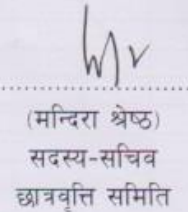 (मन्दिरा श्रेष्ठ)
सदस्य-सचिव
छात्रवृत्ति समिति